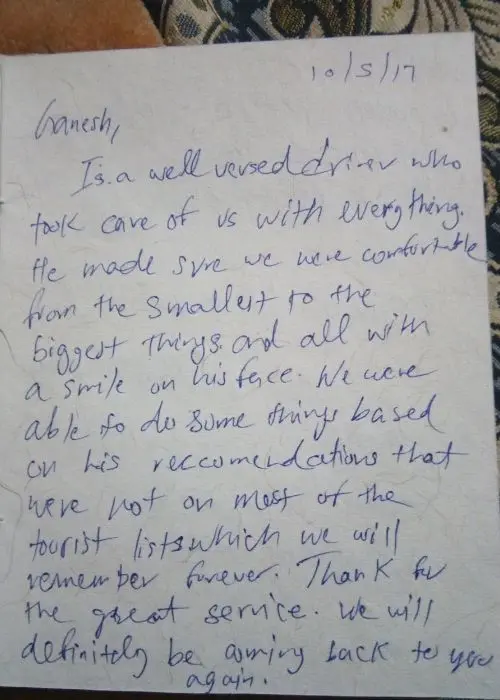 10/5/17
Ganesh,
Is a well versed driver who
took care of us with everything.
He made sure we were comfortable
from the smallest to the
biggest things and all with
a smile on his face. We were
able to do some things based
on his reccomendations that
were not on most of the
tourist lists which we will
remember forever. Thank for
the great service. We will
definitely be coming back to you
again.